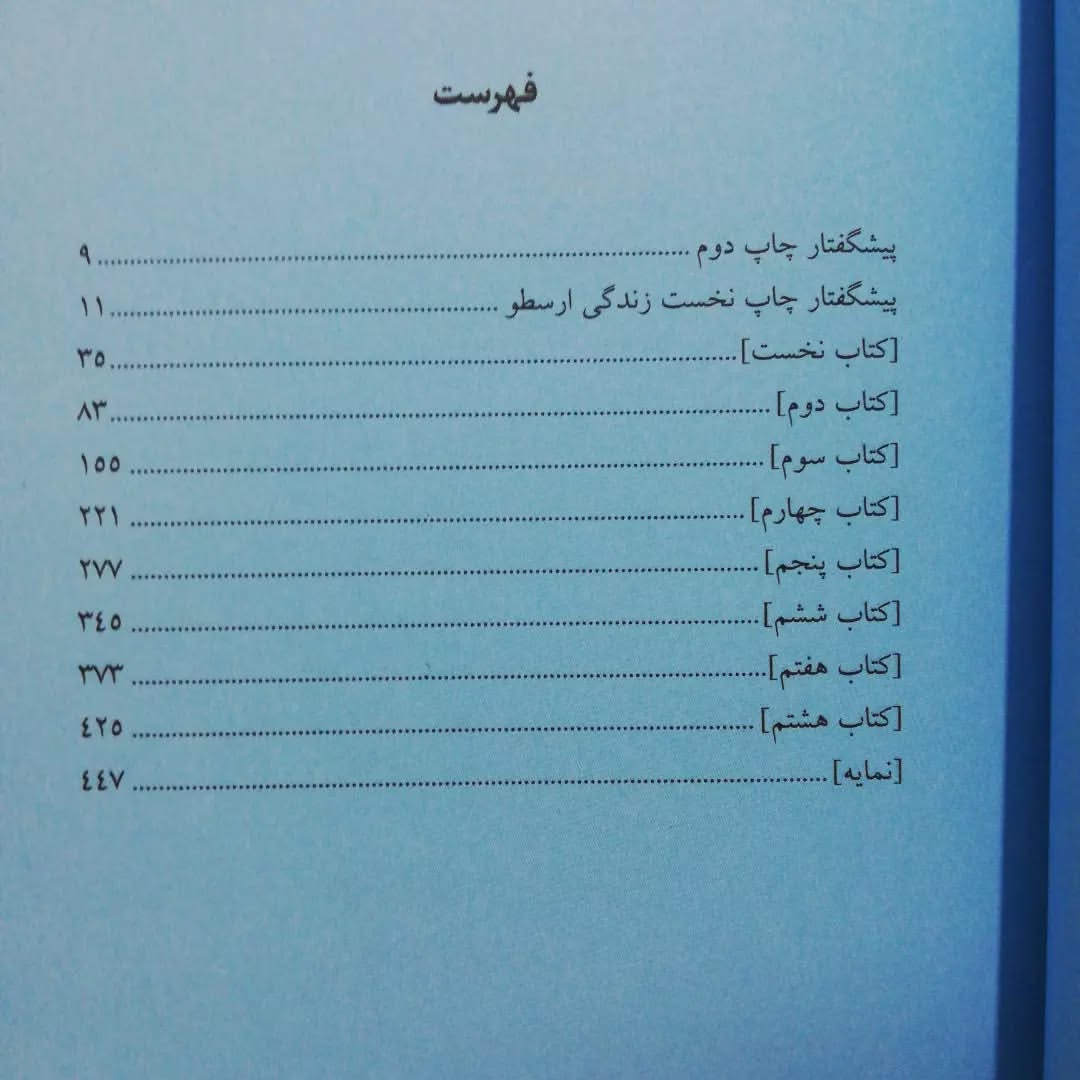 فهرست
پیشگفتار چاپ دوم ........................................ ۹
پیشگفتار چاپ نخست زندگی ارسطو ........................................ ۱۱
[کتاب نخست] ........................................ ۳۵
[کتاب دوم] ........................................ ۸۳
[کتاب سوم] ........................................ ۱۵۵
[کتاب چهارم] ........................................ ۲۲۱
[کتاب پنجم] ........................................ ۲۷۷
[کتاب ششم] ........................................ ۳٤۵
[کتاب هفتم] ........................................ ۳۷۳
[کتاب هشتم] ........................................ ٤۲۵
[نمایه] ........................................ ٤٤۷